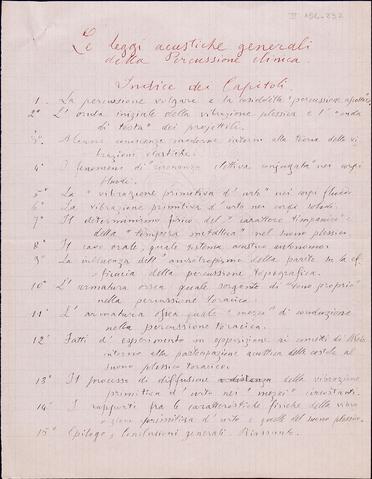 II 196-237
Le leggi acustiche generali
della Percussione clinica.
Indice dei Capitoli.
1° La percussione volgare e la cosiddetta "percussione
2° L'onda iniziale della vibrazione plessica e l'"onda
di testa" dei projettili.
3° Alcune conoscenze moderne intorno alla teoria delle vi-
brazioni elastiche.
4° I fenomeni di "risonanza elettiva conjugata" nei corpi
fluidi.
5° La "vibrazione primitiva d'urto" nei corpi fluidi
6° La vibrazione primitiva d'urto nei corpi solidi
7° Il determinismo fisico del "carattere timpanico" e
della "tempera metallica" nel suono plessico
8° Il cavo orale, quale sistema acustico autonomo
9° La influenza dell'anisotropismo della parete su la ef-
ficacia della percussione topografica.
10° L'armatura ossea quale sorgente di "suono proprio"
nella percussione toracica.
11° L'armatura ossea quale "mezzo" di conduzione
nella percussione toracica.
12° Fatti d'esperimento in opposizione ai
intorno alla partecipazione acustica delle costole al
suono plessico toracico.
13° Il processo di diffusione a distanza della vibrazione
primitiva d'urto nei "mezzi" circostanti.
14° I rapporti fra le caratteristiche fisiche della vibra-
zione primitiva d'urto e quelle del suono plessico.
15° Epilogo, Conclusioni generali. Riassunto.